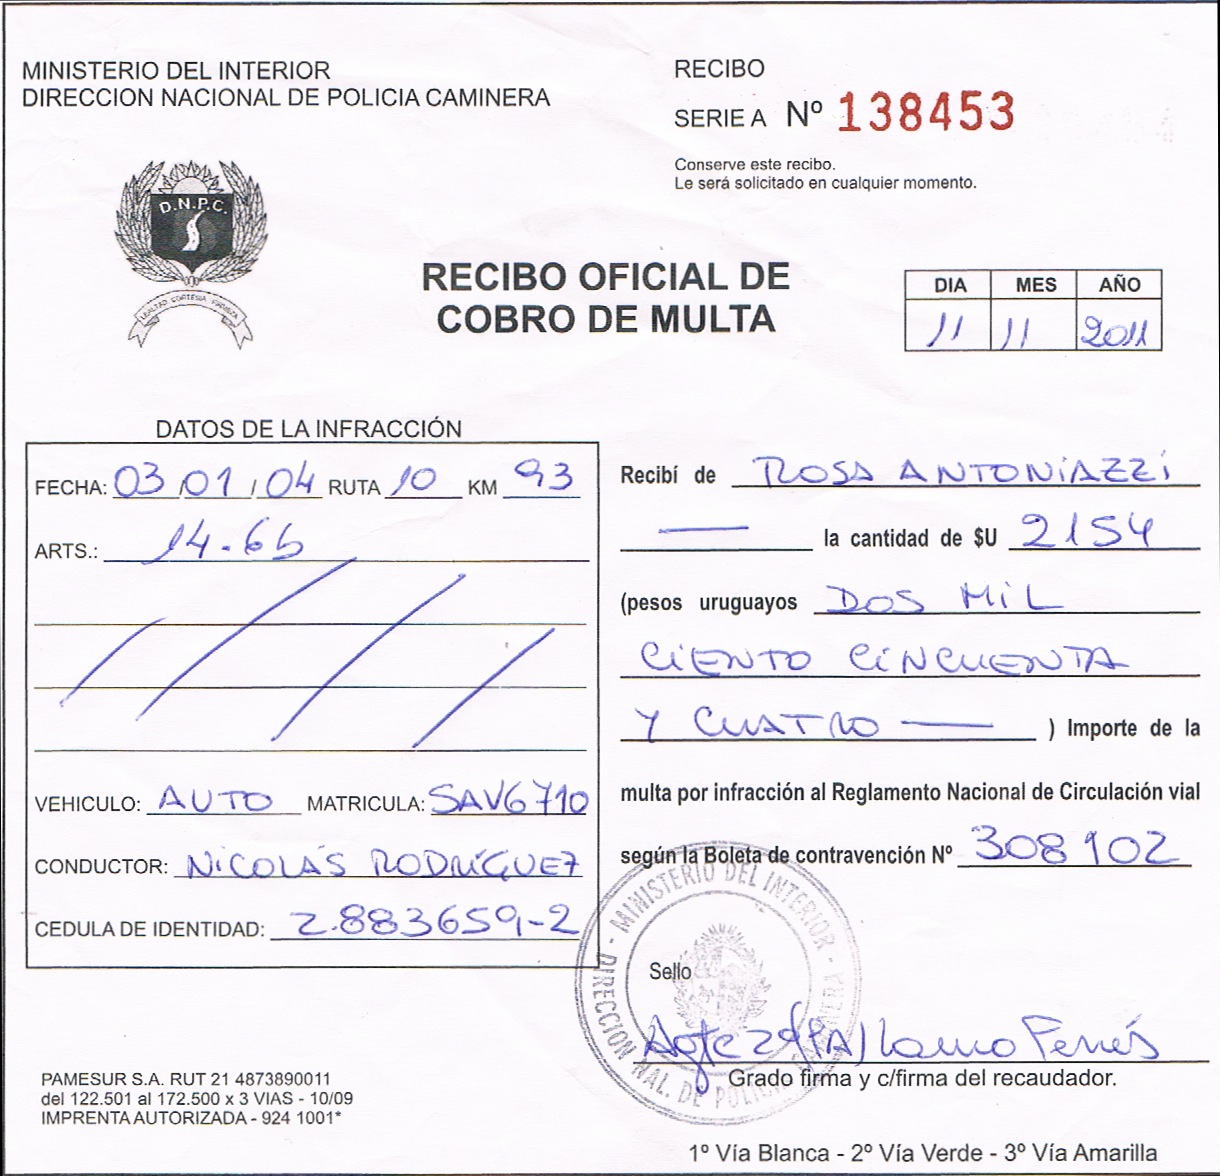 MINISTERIO DEL INTERIOR
DIRECCION NACIONAL DE POLICIA CAMINERA
RECIBO
SERIE A Nº 138453
Conserve este recibo.
Le será solicitado en cualquier momento.
D.N.P.C.
LEALTAD CORTESIA FIRMEZA
RECIBO OFICIAL DE
COBRO DE MULTA
DIA MES AÑO
11 11 2011
DATOS DE LA INFRACCIÓN
FECHA: 03/01/04 RUTA 10 KM 93
ARTS.: 14.6b
VEHICULO: AUTO MATRICULA: SAV6710
CONDUCTOR: NICOLÁS RODRÍGUEZ
CEDULA DE IDENTIDAD: 2.883659-2
Recibí de ROSA ANTONiAZZi
la cantidad de $U 2154
(pesos uruguayos DOS MiL
CiENTO CiNCUENTA
Y CUATRO ) Importe de la
multa por infracción al Reglamento Nacional de Circulación vial
según la Boleta de contravención Nº 308102
- MINISTERIO DEL INTERIOR - DIRECCION NAL. DE POLICIA CAMINERA
Sello
Agte 2ª (PA)
Grado firma y c/firma del recaudador.
PAMESUR S.A. RUT 21 4873890011
del 122.501 al 172.500 x 3 VIAS - 10/09
IMPRENTA AUTORIZADA - 924 1001*
1º Vía Blanca - 2º Vía Verde - 3º Vía Amarilla